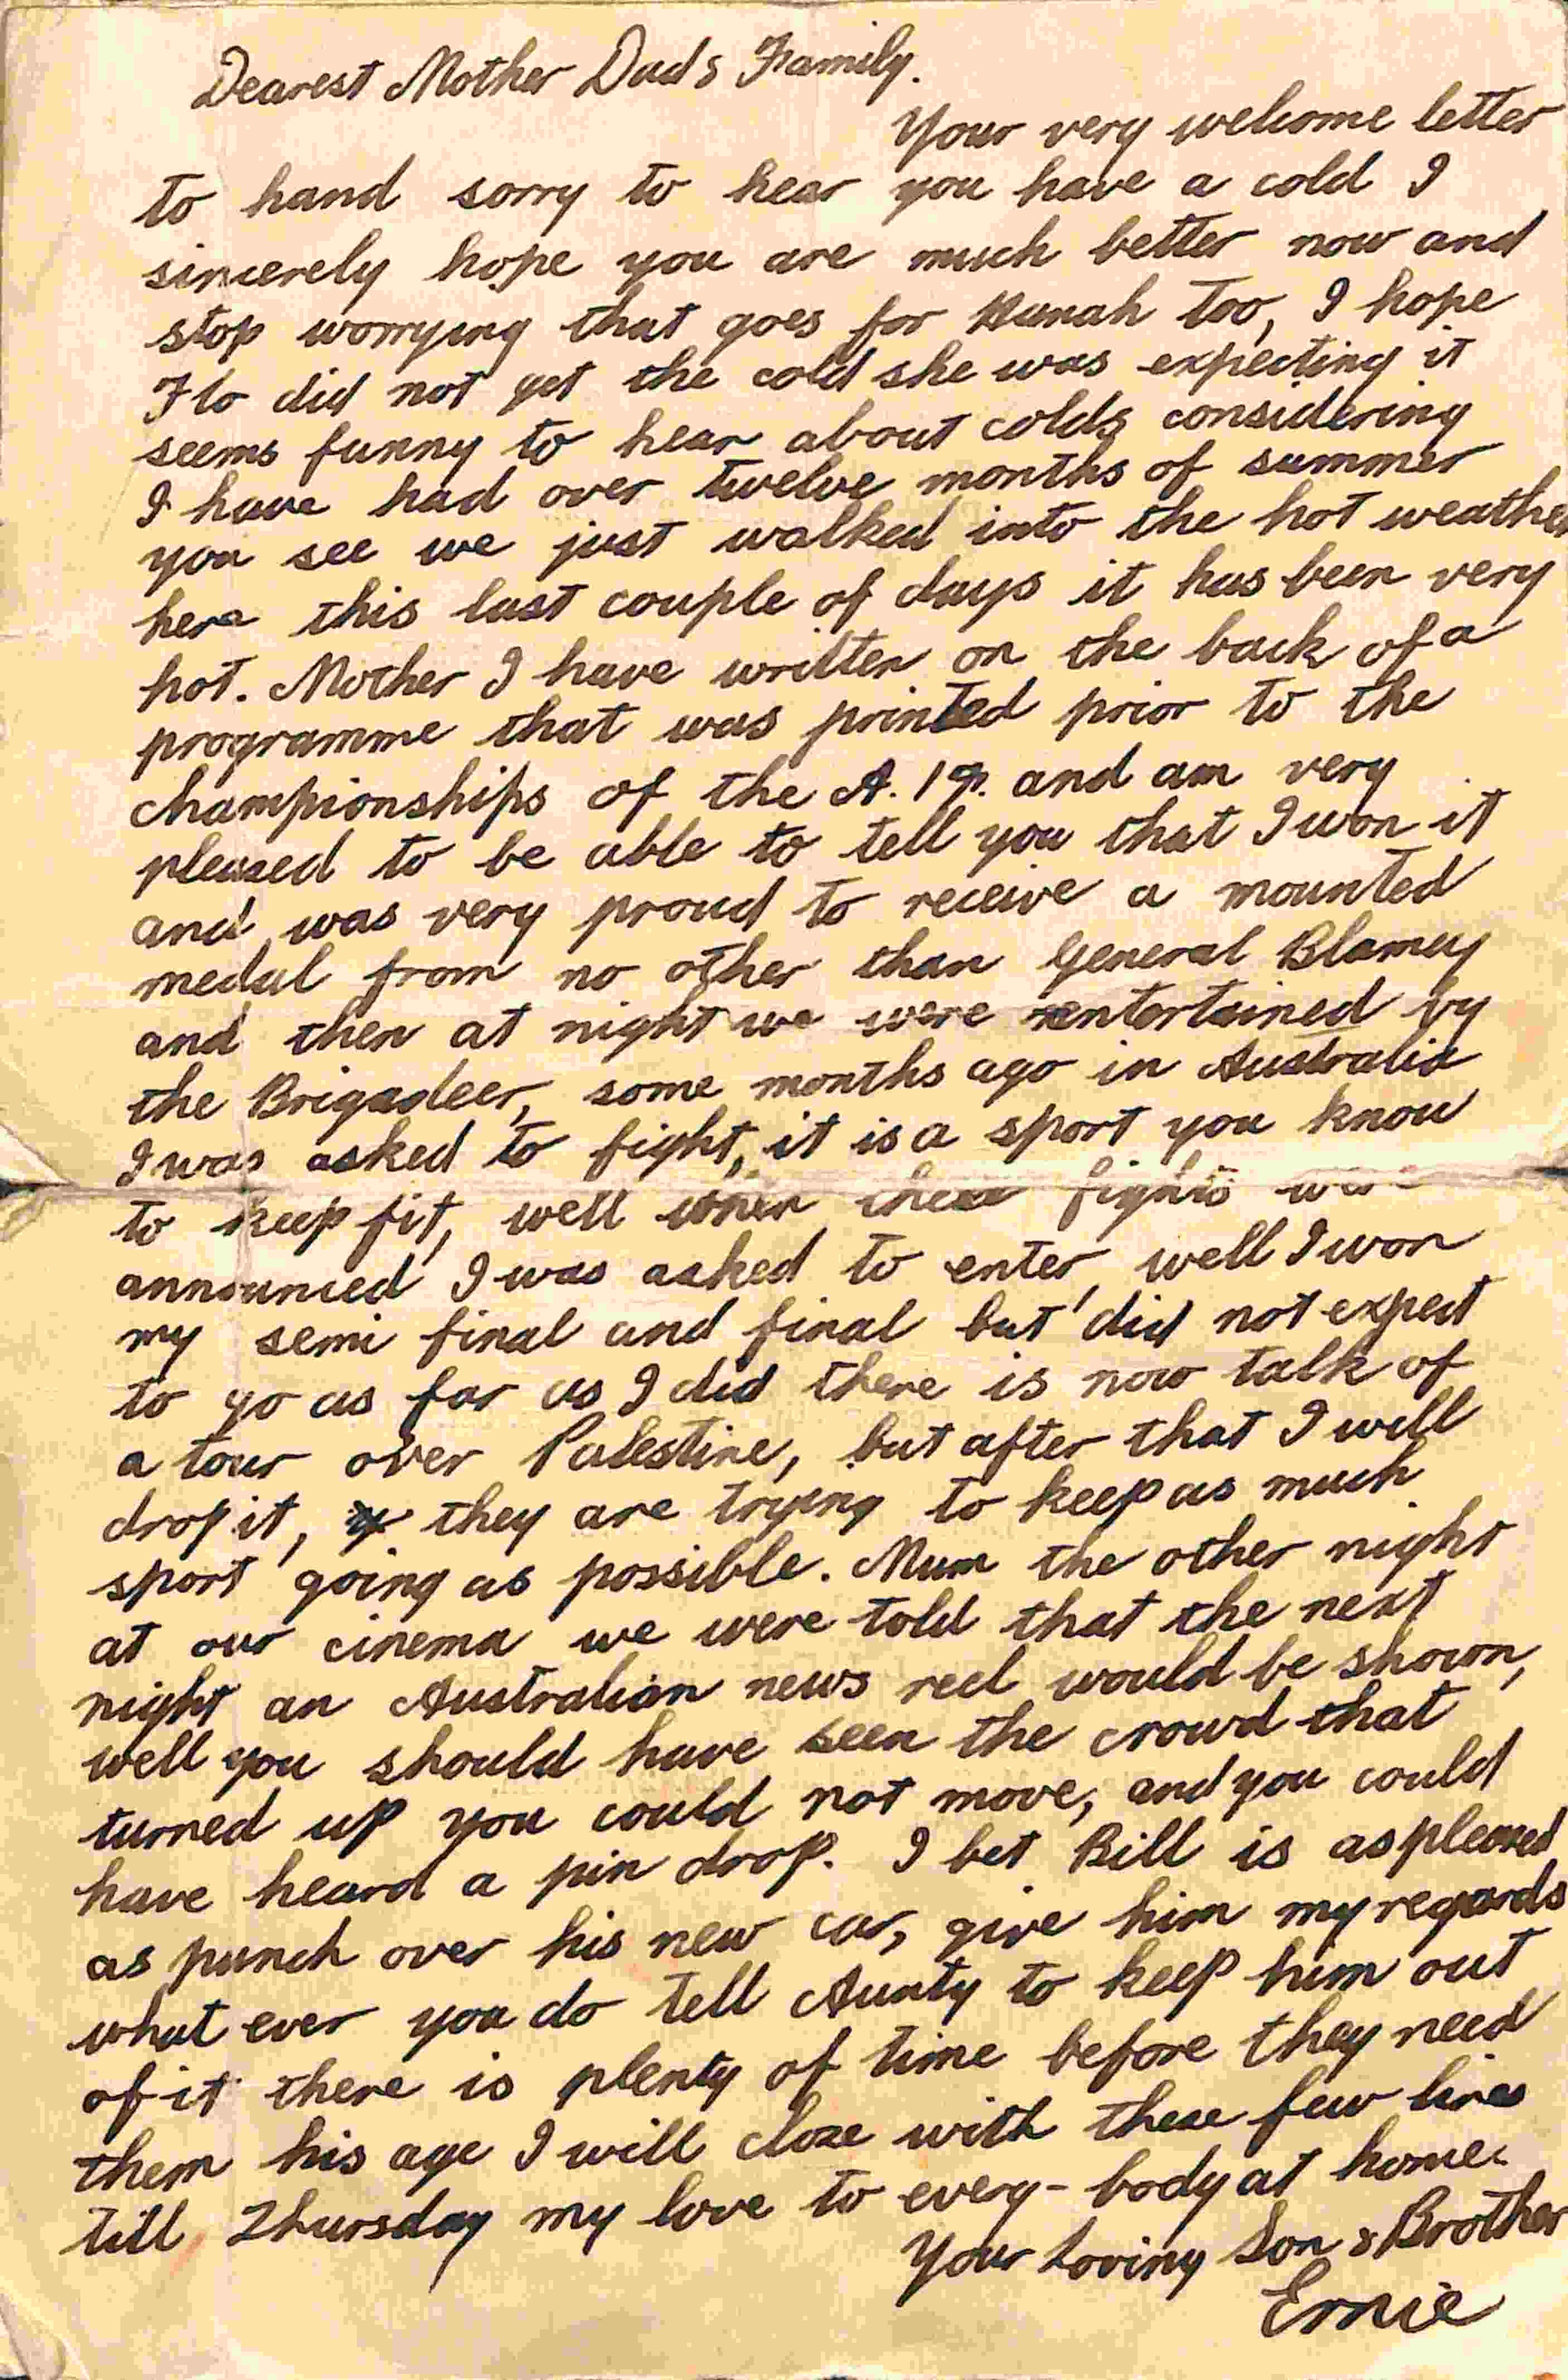 Dearest Mother Dad & Family.
Your very welcome letter
to hand sorry to hear you have a cold I
sincerely hope you are much better now and
stop worrying that goes for too, I hope
Flo did not get the cold she was expecting it
seems funny to hear about colds considering
I have had over twelve months of summer
you see we just walked into the hot weathe
here this last couple of days it has been very
hot. Mother I have written on the back of a
programme that was printed prior to the
championships of the and am very
pleased to be able to tell you that I won it
and was very proud to receive a mounted
medal from no other than General Blamey
and then at night we were entertained by
the Brigadeer, some months ago in Australia
I was asked to fight, it is a sport you know
to keep fit, well when these fights were
announced I was asked to enter, well I won
my semi final and final but did not expect
to go as far as I did there is now talk of
a tour over Palestine, but after that I will
drop it, they are trying to keep as much
sport going as possible. Mum the other night
at our cinema we were told that the next
night an Australian news reel would be shown,
well you should have seen the crowd that
turned up you could not move, and you could
have heard a pin drop. I bet Bill is as pleased
as punch over his new car, give him my regards
what ever you do tell Aunty to keep him out
of it there is plenty of time before they need
them his age I will close with these few lines
till Thursday my love to every-body at home.
Your Loving Son & Brother
Ernie